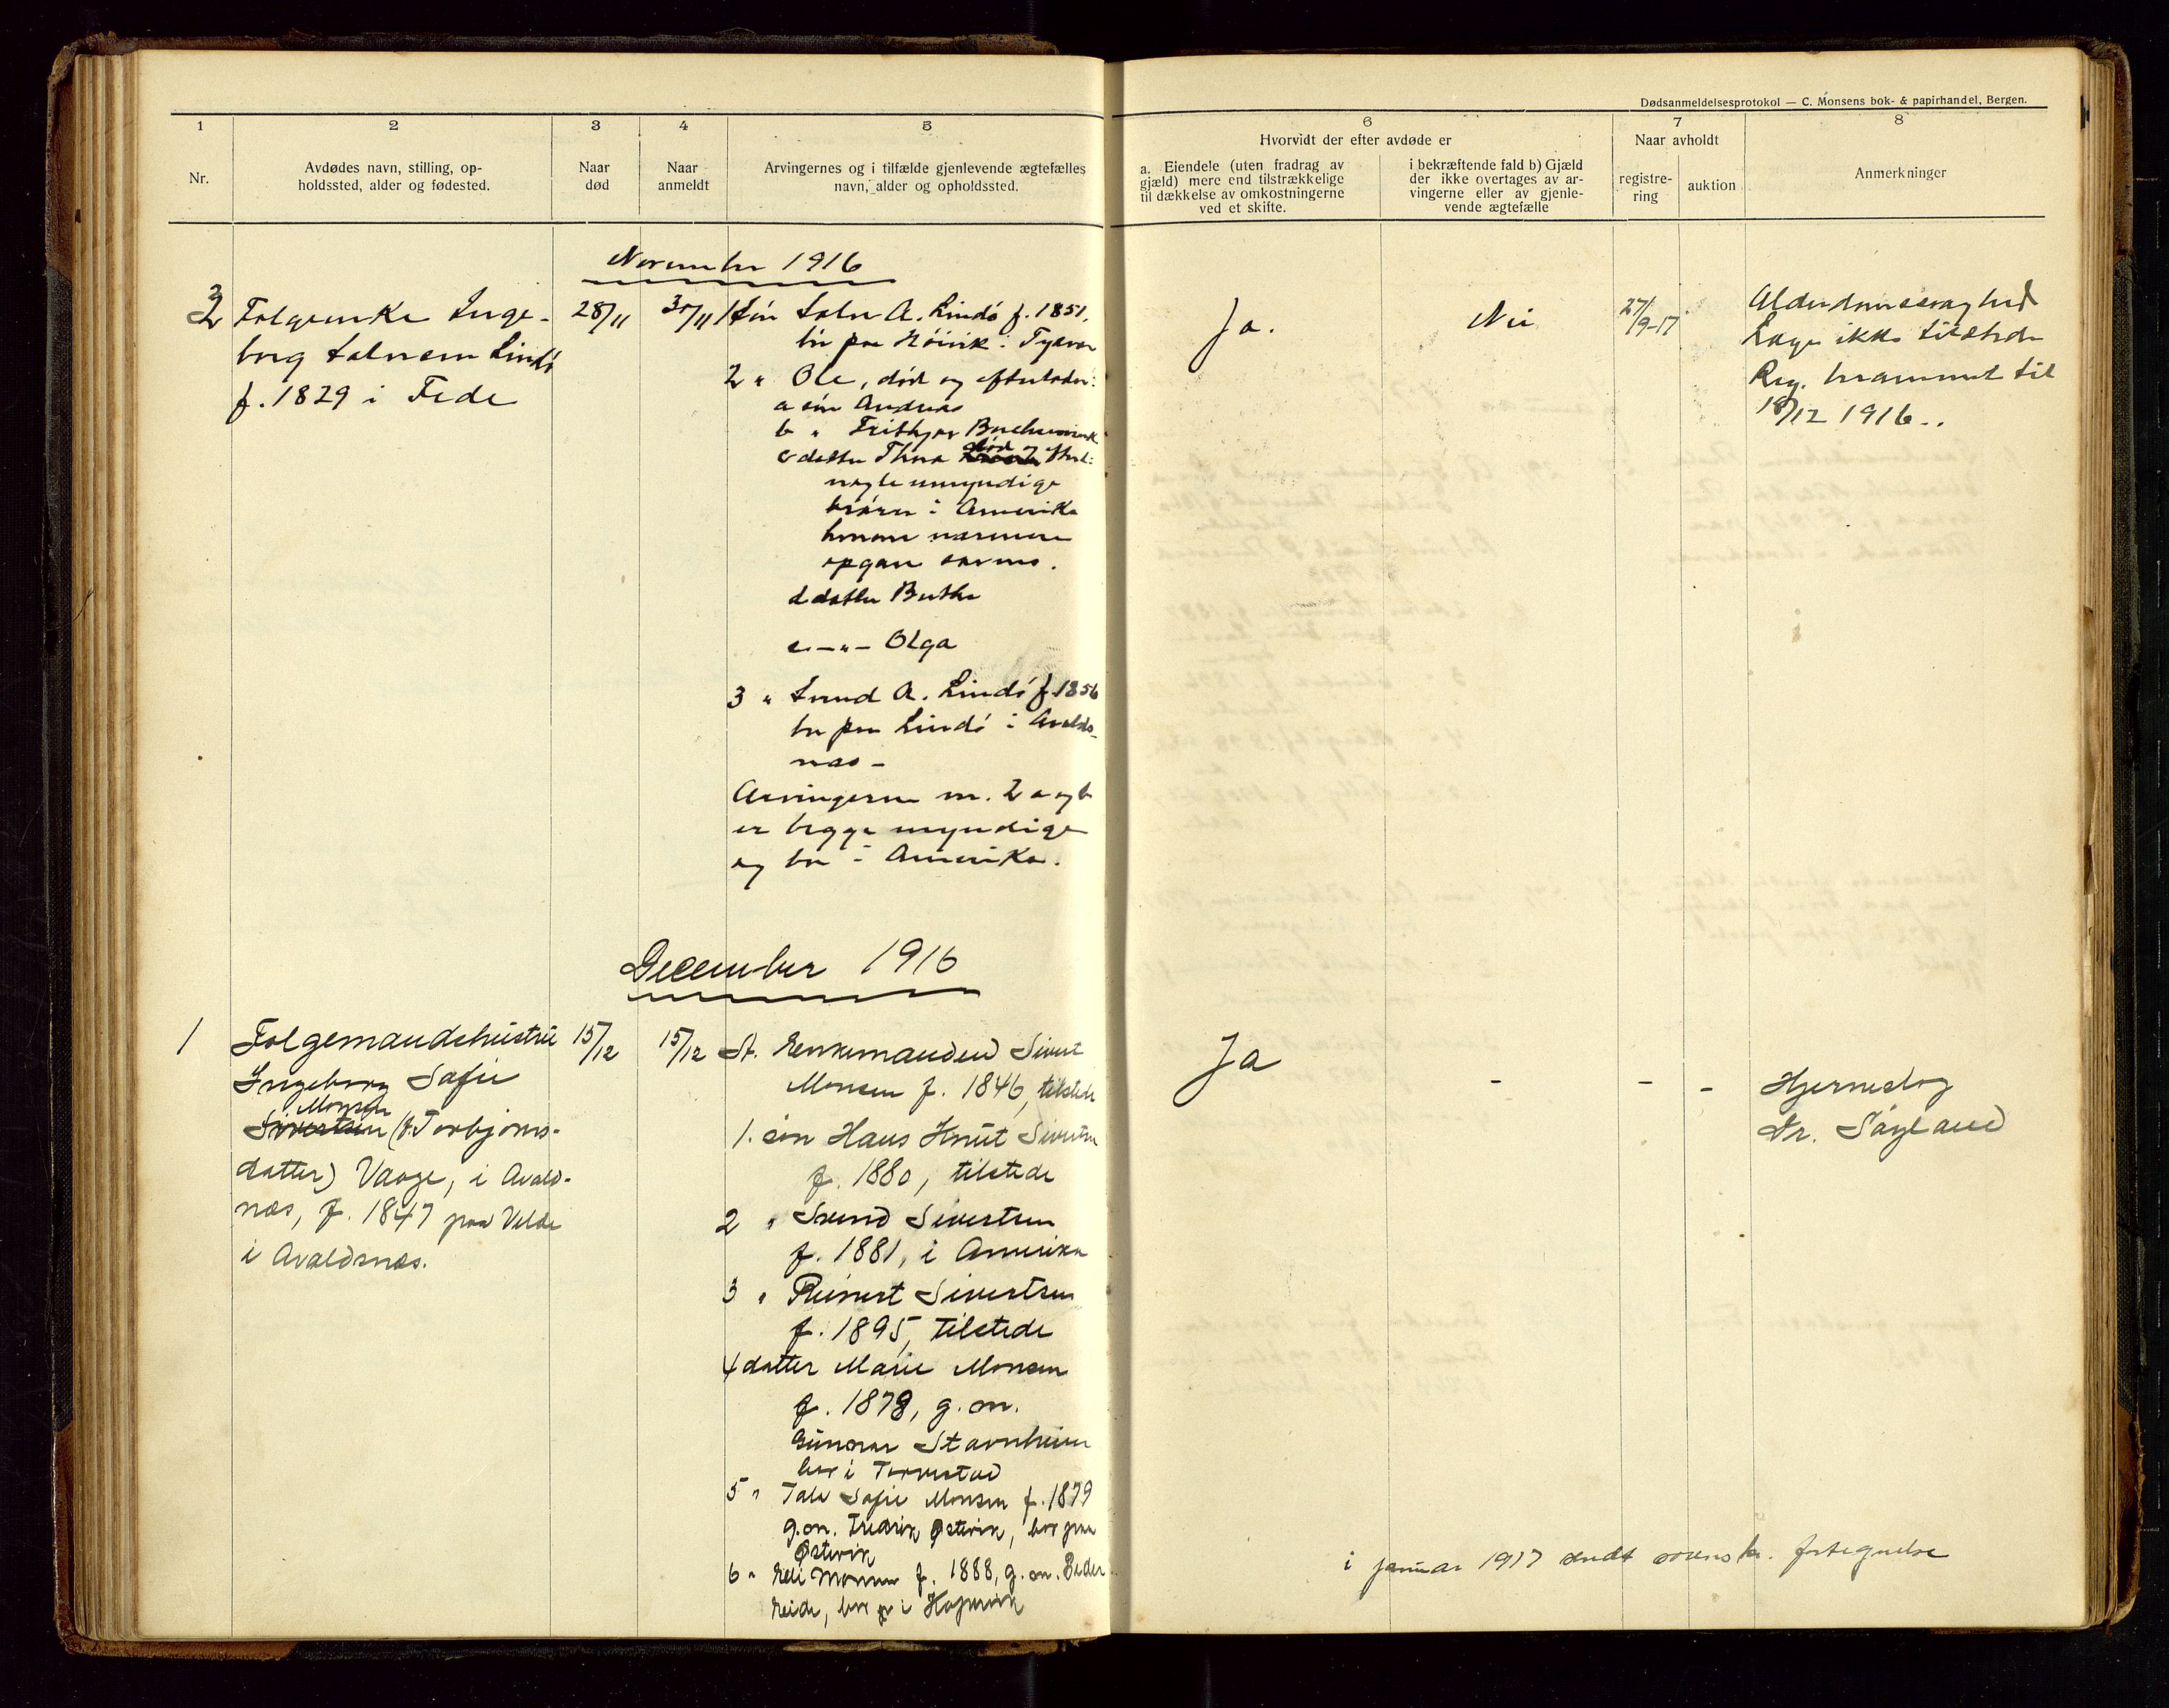 Dødsanmeldelsesprotokol — C. Monsens bok- & papirhandel, Bergen.
1 2 3 4 5 6 7 8
Nr.
Avdødes navn, stilling, op-
holdssted, alder og fødested.
Naar
død
Naar
anmeldt
Arvingernes og i tilfælde gjenlevende ægtefælles
navn, alder og opholdssted.
Hvorvidt der efter avdøde er
a. Eiendele (uten fradrag av
gjæld) mere end tilstrækkelige
til dækkelse av omkostningerne
ved et skifte.
i bekræftende fald b) Gjæld
der ikke overtages av ar-
vingerne eller av gjenle-
vende ægtefælle
Naar avholdt
registre-
ring
auktion
Anmerkninger
November 1916
Folgeenke Inge-
borg Lindø
f. 1829 i
28/11
30/11
1 Søn A. Lindø f. 1851,
bor paa i Tysvær
2 " Ole, død og efterlader:
a søn Andreas
b " Frithjov
c datter Thora død og efterl:
nogle umyndige
børn i Amerika
hvorom nærmere
opgave savnes.
d datter Berthe
e -"- Olga
3 " Svend A. Lindø f. 1856
bor paa Lindø i Avalds-
næs -
Arvingerne nr. 2 a og b
er begge myndige
og bor i Amerika.
Ja.
Nei
27/9-17
Alderdomssvaghed
Læge ikke tilstede
Reg. berammet til
18/12 1916..
December 1916
1
Folgemandshustru
Ingeborg Sofie
Monsen
Sivertsen (f. Torbjørns-
datter) Vaage, i Avalds-
næs, f. 1847 paa Velde
i Avaldsnæs.
15/12
15/12
Enkemanden Sivert
Monsen f. 1846, tilstede
1. søn Hans Knut Sivertsen
f. 1880, tilstede
2 " Svend Sivertsen
f. 1881, i Amerika
3 " Reinert Sivertsen
f. 1895, tilstede
4 datter Marie Monsen
f. 1878, g. m.
Gunnar Stavnheim
bor i Torvestad
5 " Tale Sofie Monsen f. 1879
g. m. Fredrik Østevik, bor paa
Østevik
6 " Elli Monsen f. 1888, g. m. Peder
Eide, bor i Kopervik
Ja
-
-
-
Hjerneslag
Dr. Søyland
i januar 1917 sendt fortegnelse